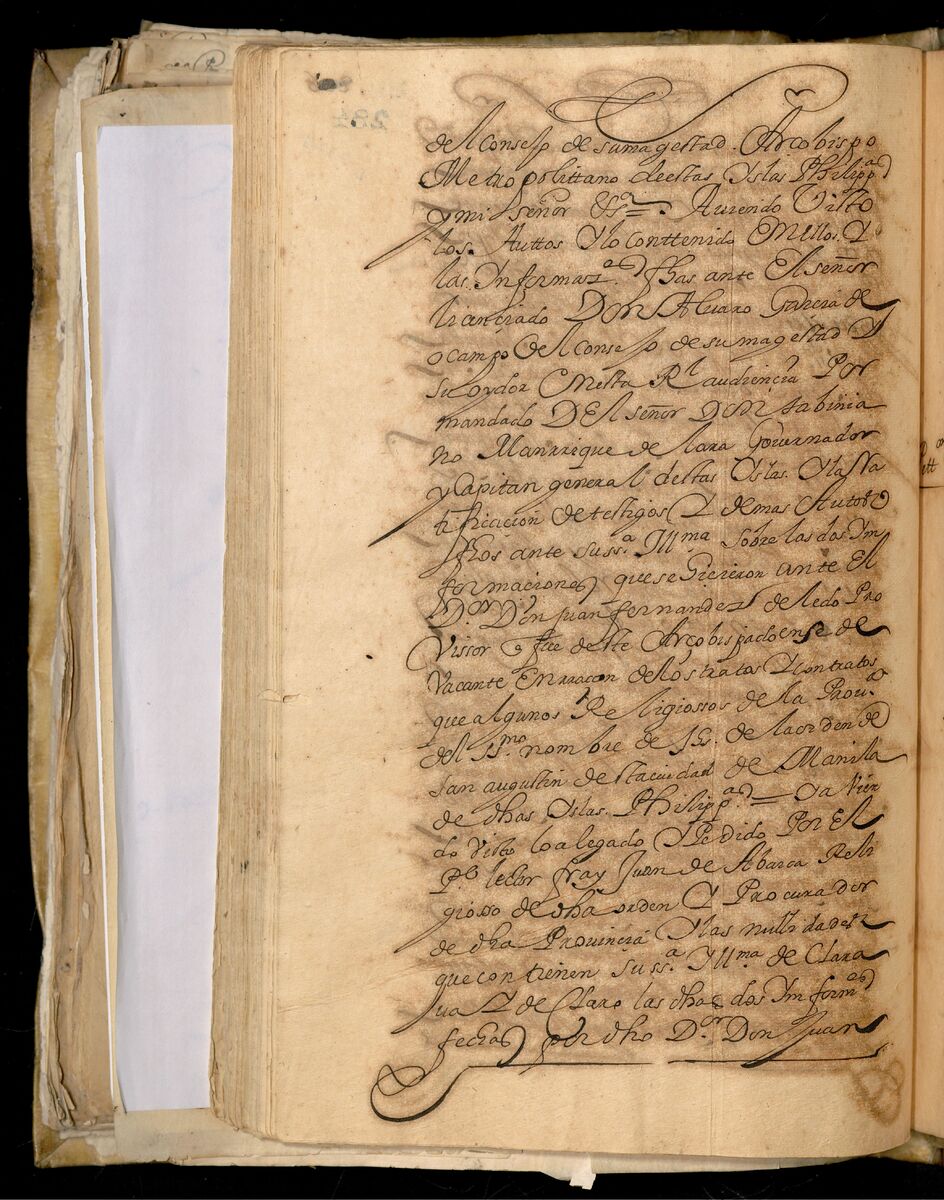 del Consejo de su magestad. Arcobispo
Metropolittano de estas Yslas Philippas
y mi señor &ª = Auiendo Visto
los Auttos Y lo conttenido En ellos. Y
las Ynformasȝ.as fhas ante El señor
licenciado Don Aluaro Garcia de
ocampo del Consejo de su magestad Y
su oydor En esta Rl audiencia Por
mandado DEl señor Don sabinia
no Manrrique de lara Gouernador
y Capitan general de estas Yslas. Y la Ra
tificacion de testigos Y demas Autos
fhos ante su ssª Illma sobre las dos Ym
formaciones que se hicieron ante El
Dor Don Juan fernandez de ledo Pro
Vissor q fue de este Arçobispado en se de
Vacante En rraçon de los tratos Y contratos
que algunos Religiossos de la Prouª
del ssmo nombre de IHS. de la orden de
san augustin de esta ciudad de Manila
de dhas Yslas. Philippas = Y a Vien
do Visto lo alegado Y Pedido Por El
Pe lector fray Juan de Abarca Reli
giosso de dha orden Y Procurador
de dha Prouincia Y las nullidades
que contienen su ssª Yllma de Clara
ua Y de Claro las dhas dos Ymformas
fechas por dho Dor Don Juan